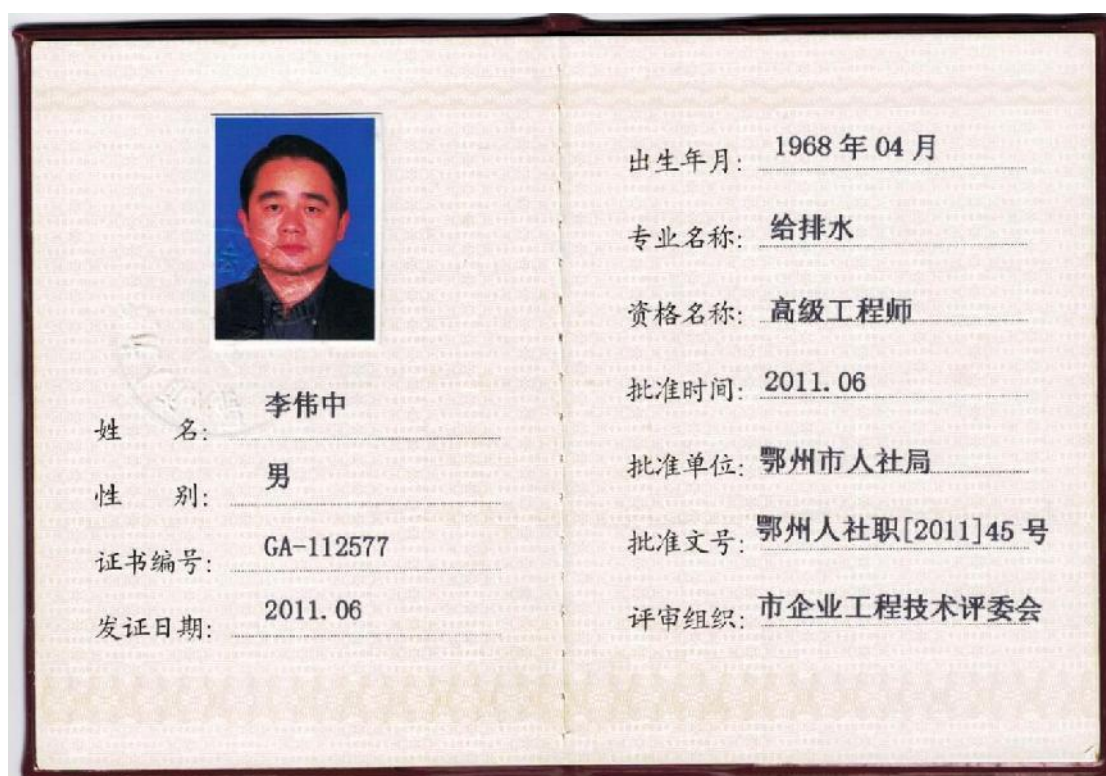 姓 名: 李伟中
性 别: 男
证书编号: GA-112577
发证日期: 2011.06
出生年月: 1968年04月
专业名称: 给排水
资格名称: 高级工程师
批准时间: 2011.06
批准单位: 鄂州市人社局
批准文号: 鄂州人社职[2011]45号
评审组织: 市企业工程技术评委会